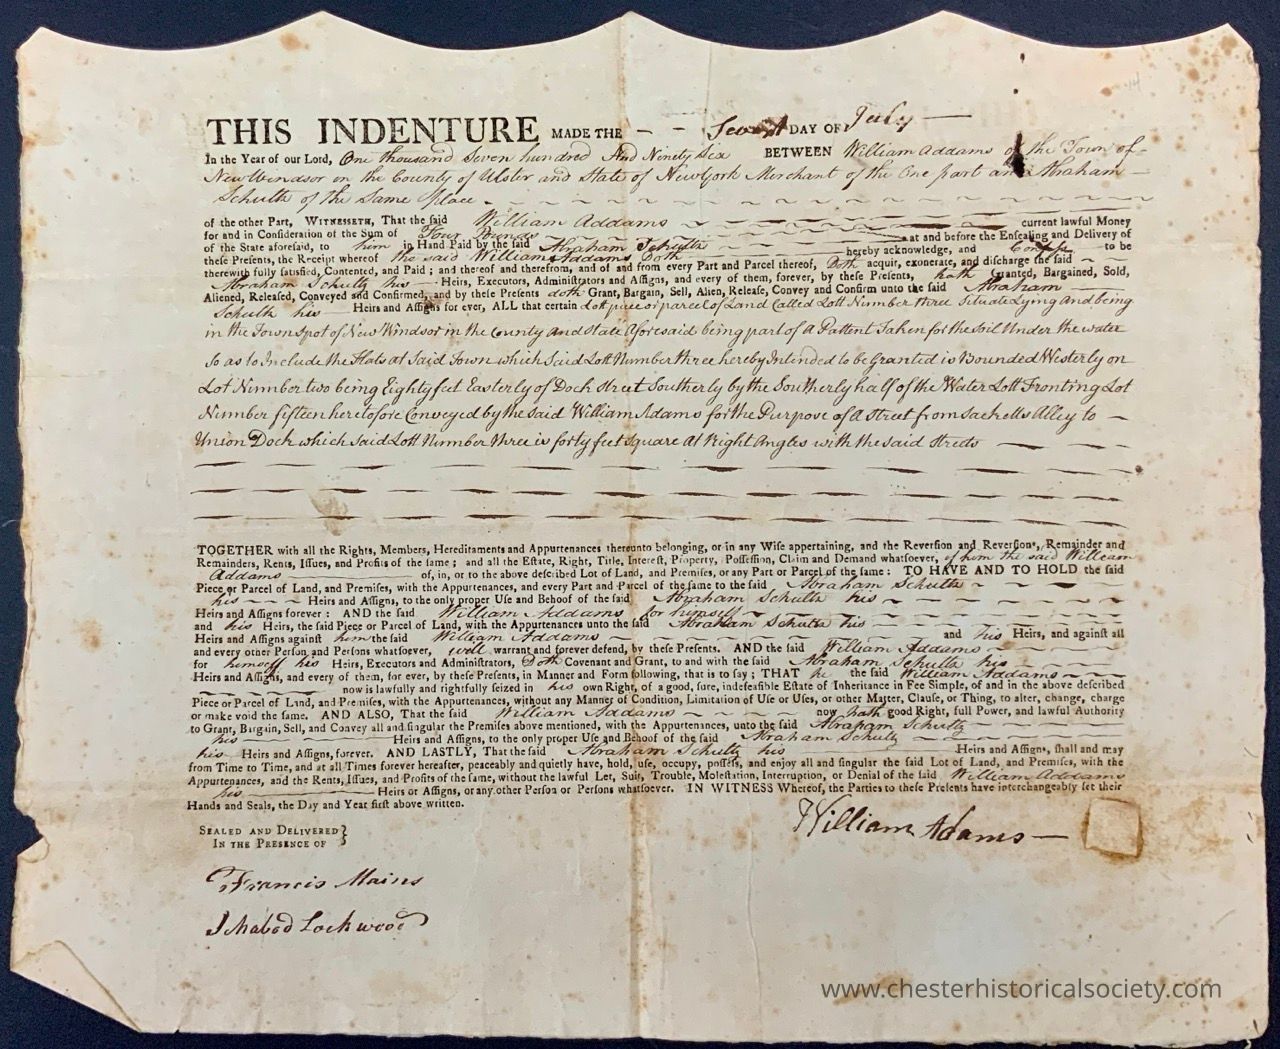 THIS INDENTURE MADE THE DAY OF July
In the Year of our Lord, One thousand Seven hundred And Ninety Six BETWEEN William Addams of the Town of
New Windsor in the County of Ulster and State of New York Merchant of the One part and Abraham
Schultz of the Same place
of the other Part, WITNESSETH, That the said William Addams
for and in Consideration of the Sum of Four Pounds current lawful Money
of the State aforesaid, to him in Hand Paid by the said Abraham Schultz at and before the Ensealing and Delivery of
these Presents, the Receipt whereof the said William Addams Doth hereby acknowledge, and to be
therewith fully satisfied, Contented, and Paid; and thereof and therefrom, and of and from every Part and Parcel thereof, Doth acquit, exonerate, and discharge the said
Abraham Schultz his Heirs, Executors, Administrators and Assigns, and every of them, forever, by these Presents, hath Granted, Bargained, Sold,
Aliened, Released, Conveyed and Confirmed, and by these Presents doth Grant, Bargain, Sell, Alien, Release, Convey and Confirm unto the said Abraham
Schultz his Heirs and Assigns for ever, ALL that certain Lott piece or parcel of Land Called Lott Number three Situate Lying And being
in the Township of New Windsor in the County and State Aforesaid being part of A Pattent Taken for the Soil Under the water
So as to Include the Flats at Said Town which Said Lott Number three hereby Intended to be Granted is Bounded Westerly on
Lot Number two being Eighty feet Easterly of Dock Street Southerly by the Southerly half of the Water Lott Fronting Lot
Number fifteen heretofore Conveyed by the said William Adams for the Purpose of A Street from Sacketts Alley to
Union Dock which Said Lott Number three is forty feet square At Right Angles with the said Streets
TOGETHER with all the Rights, Members, Hereditaments and Appurtenances thereunto belonging, or in any Wise appertaining, and the Reversion and Reversions, Remainder and
Remainders, Rents, Issues, and Profits of the same; and all the Estate, Right, Title, Interest, Property, Possession, Claim and Demand whatsoever, of him the said William
Addams of, in, or to the above described Lot of Land, and Premises, or any Part or Parcel of the same: TO HAVE AND TO HOLD the said
Piece or Parcel of Land, and Premises, with the Appurtenances, and every Part and Parcel of the same to the said Abraham Schultz
his Heirs and Assigns, to the only proper Use and Behoof of the said Abraham Schultz his
Heirs and Assigns forever: AND the said William Addams for himself
and his Heirs, the said Piece or Parcel of Land, with the Appurtenances unto the said Abraham Schultz his
Heirs and Assigns against him the said William Addams and his Heirs, and against all
and every other Person and Persons whatsoever, will warrant and forever defend, by these Presents. AND the said William Addams
for himself his Heirs, Executors and Administrators, Doth Covenant and Grant, to and with the said Abraham Schultz his
Heirs and Assigns, and every of them, for ever, by these Presents, in Manner and Form following, that is to say; THAT he the said William Addams
now is lawfully and rightfully seized in his own Right, of a good, sure, indefeasible Estate of Inheritance in Fee Simple, of and in the above described
Piece or Parcel of Land, and Premises, with the Appurtenances, without any Manner of Condition, Limitation of Use or Uses, or other Matter, Clause, or Thing, to alter, change, charge
or make void the same. AND ALSO, That the said William Addams now hath good Right, full Power, and lawful Authority
to Grant, Bargain, Sell, and Convey all and singular the Premises above mentioned with the Appurtenances, unto the said Abraham Schultz
his Heirs and Assigns, to the only proper Use and Behoof of the said Abraham Schultz
his Heirs and Assigns, forever. AND LASTLY, That the said Abraham Schultz his Heirs and Assigns, shall and may
from Time to Time, and at all Times forever hereafter, peaceably and quietly have, hold, use, occupy, possess, and enjoy all and singular the said Lot of Land, and Premises, with the
Appurtenances, and the Rents, Issues, and Profits of the same, without the lawful Let, Suit, Trouble, Molestation, Interruption, or Denial of the said William Addams
his Heirs or Assigns, or any other Person or Persons whatsoever. IN WITNESS Whereof, the Parties to these Presents have interchangeably set their
Hands and Seals, the Day and Year first above written.
William Adams
SEALED AND DELIVERED }
IN THE PRESENCE OF
Francis Mains
Ichabod Lockwood
www.chesterhistoricalsociety.com